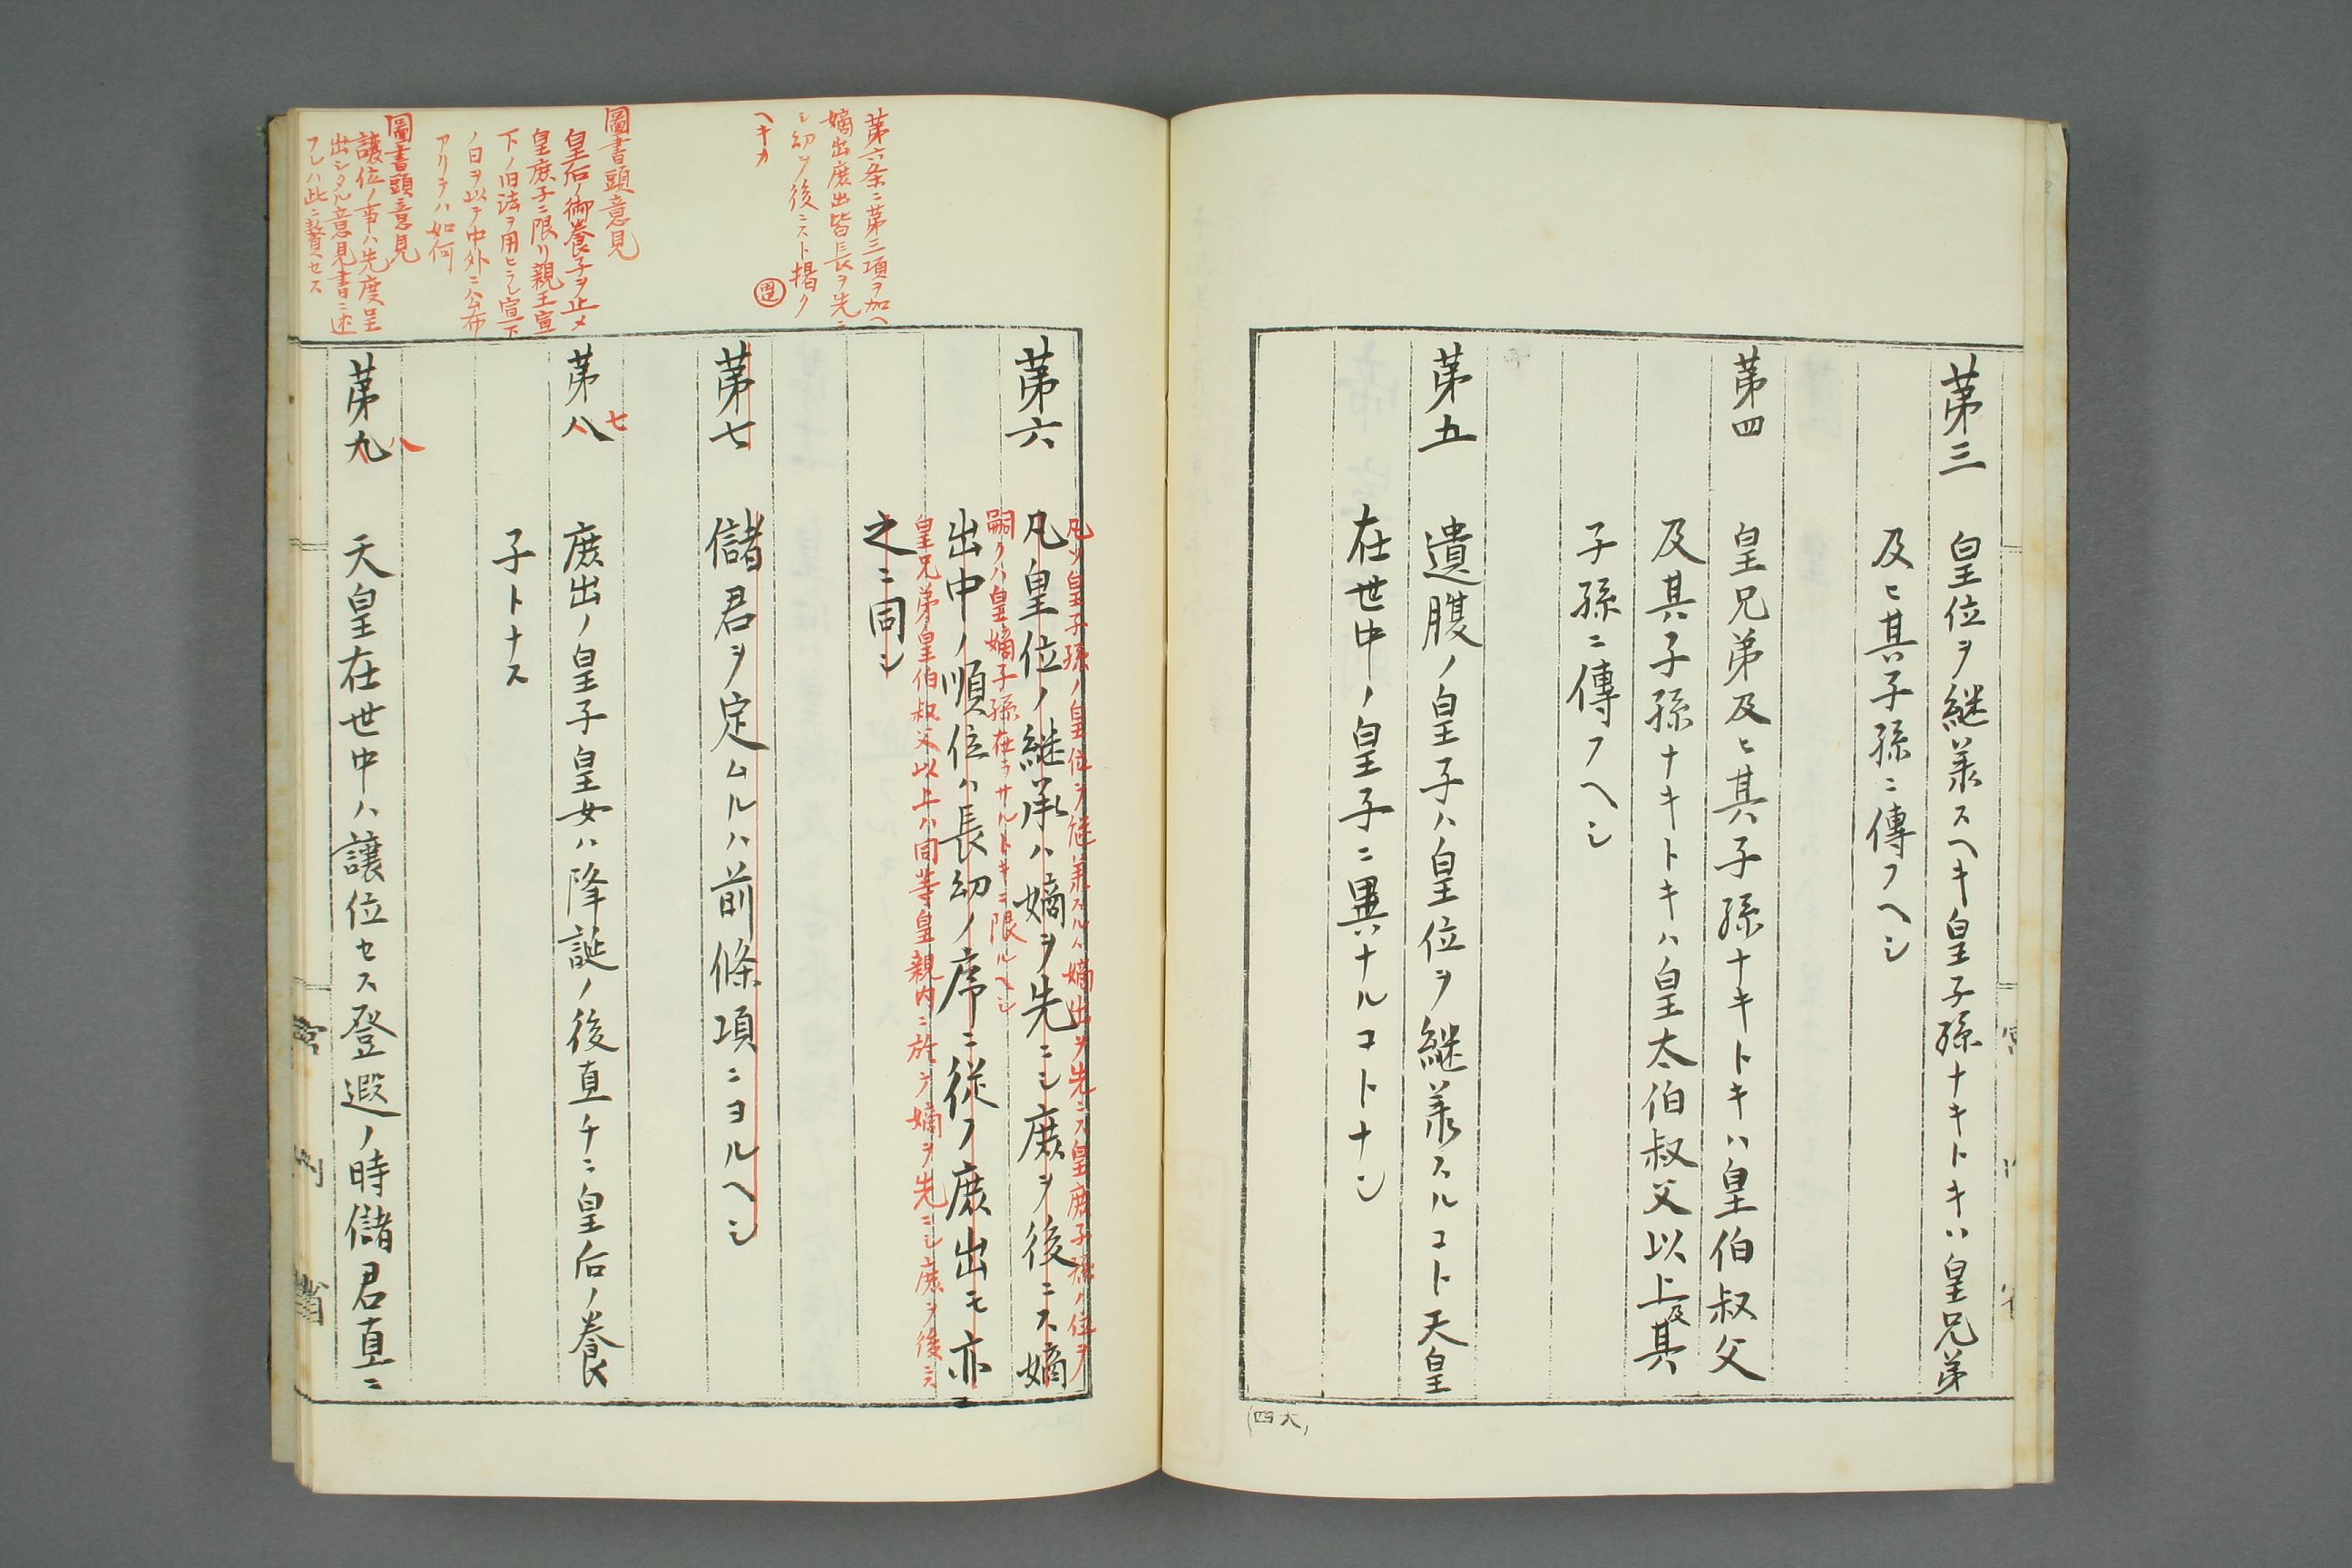 第三 皇位ヲ継承スヘキ皇子孫ナキトキハ皇兄弟
及ヒ其子孫ニ傳フヘシ
第四 皇兄弟及ヒ其子孫ナキトキハ皇伯叔父
及其子孫ナキトキハ皇太伯叔父以上及其
子孫ニ傳フヘシ
第五 遺腹ノ皇子ハ皇位ヲ継承スルコト天皇
在世中ノ皇子ニ異ナルコトナシ
(四大)
第六条ニ第三項ヲ加ヘ
嫡出庶出皆長ヲ先ニ
シ幼ヲ後ニスト掲ク
ヘキカ
圖書頭意見
皇后ノ御養子ヲ止メ
皇庶子ニ限リ親王宣
下ノ旧法ヲ用ヒラレ宣下
ノ日ヲ以テ中外ニ公布
アリテハ如何
圖書頭意見
譲位ノ事ハ先度呈
出シタル意見書ニ述
フレハ此ニ贅セス
凡ソ皇子孫ノ皇位ヲ継承スルハ嫡出ヲ先ニス皇庶子孫ノ位ヲ
第六 凡皇位ノ継承ハ嫡ヲ先ニシ庶ヲ後ニス嫡
嗣クハ皇嫡子孫在ラサルトキニ限ルヘシ
出中ノ順位ハ長幼ノ序ニ従フ庶出モ亦
皇兄弟皇伯叔父以上ハ同等皇親内ニ於テ嫡ヲ先ニシ庶ヲ後ニス
之ニ同シ
第七 儲君ヲ定ムルハ前條項ニヨルヘシ
七
第八 庶出ノ皇子皇女ハ降誕ノ後直チニ皇后ノ養
子トナス
八
第九 天皇在世中ハ譲位セス登遐ノ時儲君直ニ
宮内省